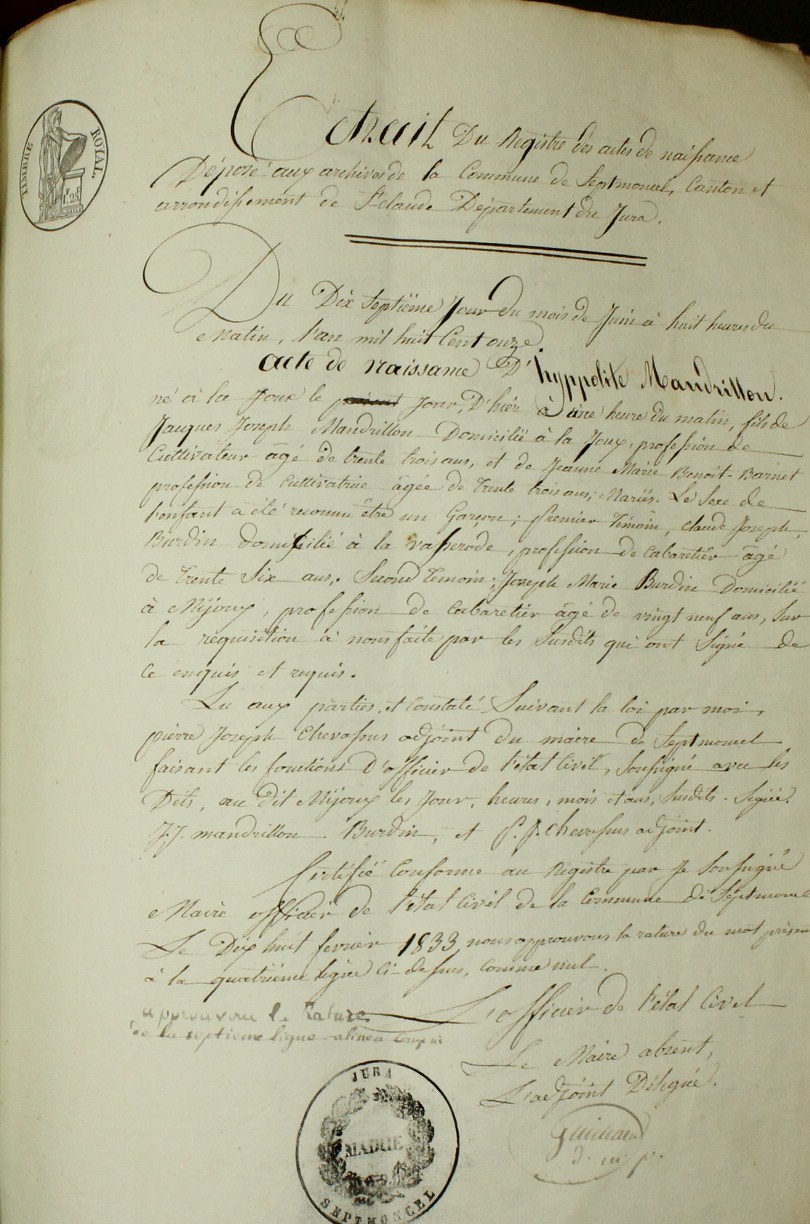 TIMBRE ROYAL
Extrait Du Registre des actes de naissance
Déposé aux archives de la Commune de Septmoncel, Canton et
arrondissement de St Claude Département du Jura.
Du Dix Septième Jour du mois de Juin à huit heures du
Matin, l'an mil huit Cent onze.
acte de naissance D'hyppolite Mandrillon.
né à la Joux le présent Jour, D'hier à une heure du matin, fils de
Jacques Joseph Mandrillon Domicilié à la Joux, profession de
Cultivateur âgé de trente trois ans, et de Jeanne Marie Benoit-Barnet
profession de Cultivatrice âgée de Trente trois ans, Mariés. Le Sexe de
l'enfant a été reconnu être un Garçon; Premier Témoin, Claude Joseph,
Burdin domicilié à la , profession de Cabaretier âgé
de Trente Six ans. Second Temoin; Joseph Marie Burdin Domicilié
à Mijoux, profession de Cabaretier âgé de vingt neuf ans, Sur
la requisition à nous faite par les Susdits qui ont Signé de
Ce enquis et requis.
Lu aux parties, et Constaté Suivant la loi par moi,
pierre Joseph Chevassus adjoint du maire de Septmoncel
faisant les fonctions D'officier de l'état Civil, Soussigné avec les
Dits, au dit Mijoux les Jour, heures, mois et ans, Susdits. Signé.
J.J. mandrillon Burdin, et P. J. Chevassus adjoint.
Certifié Conforme au Registre par Je Soussigné
Maire officier de l'état Civil de la Commune de Septmoncel
Le Dix huit fevrier 1833, nous approuvons la rature du mot présent
à la quatrième ligne Ci-dessus, Comme nul.
approuvons la rature L'officier de l'état Civil
de la septieme ligne alinéa compris
Le Maire absent,
L'adjoint Délégué.
JURA
MAIRIE
SEPTMONCEL